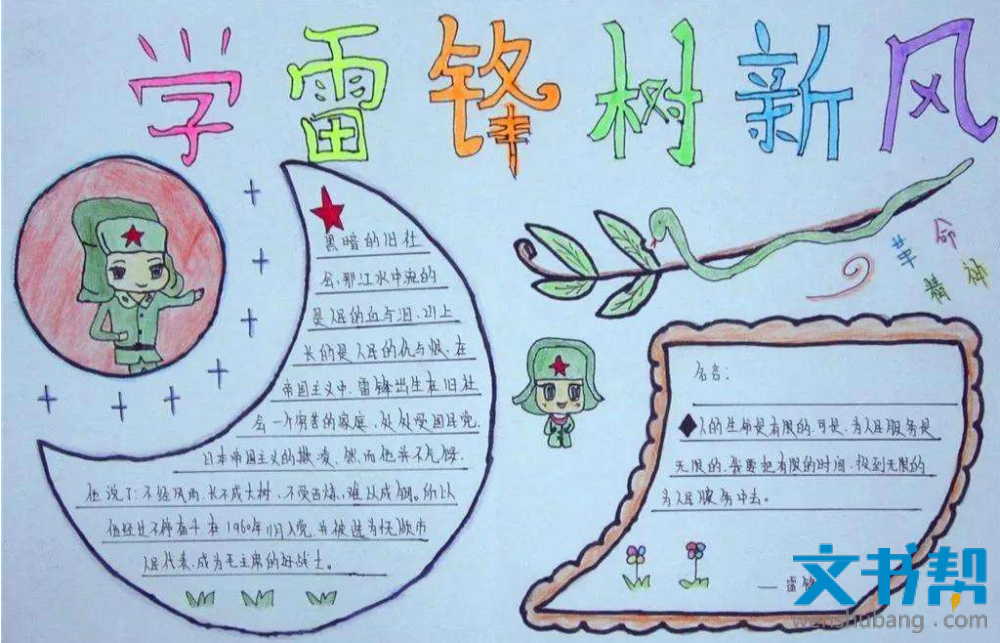 学雷锋树新风
黑暗的旧社
会,那江水中流的
是人民的血与泪,山上
长的是人民的仇与恨,在
帝国主义中,雷锋出生在旧社
会一个穷苦的家庭,处处受国民党,
日本帝国主义的欺凌,然而他并不气馁,
他说了:不经风雨,长不成大树,不受百炼,难以成钢。所以
他经过不停奋斗,在1960年11月入党,并被选为抚顺市
人民代表,成为毛主席的好战士。
革命
精神
名言:
人的生命是有限的,可是,为人民服务是
无限的,我要把有限的时间,投到无限的
为人民服务中去。
—雷锋
文书帮
wenshubang.com